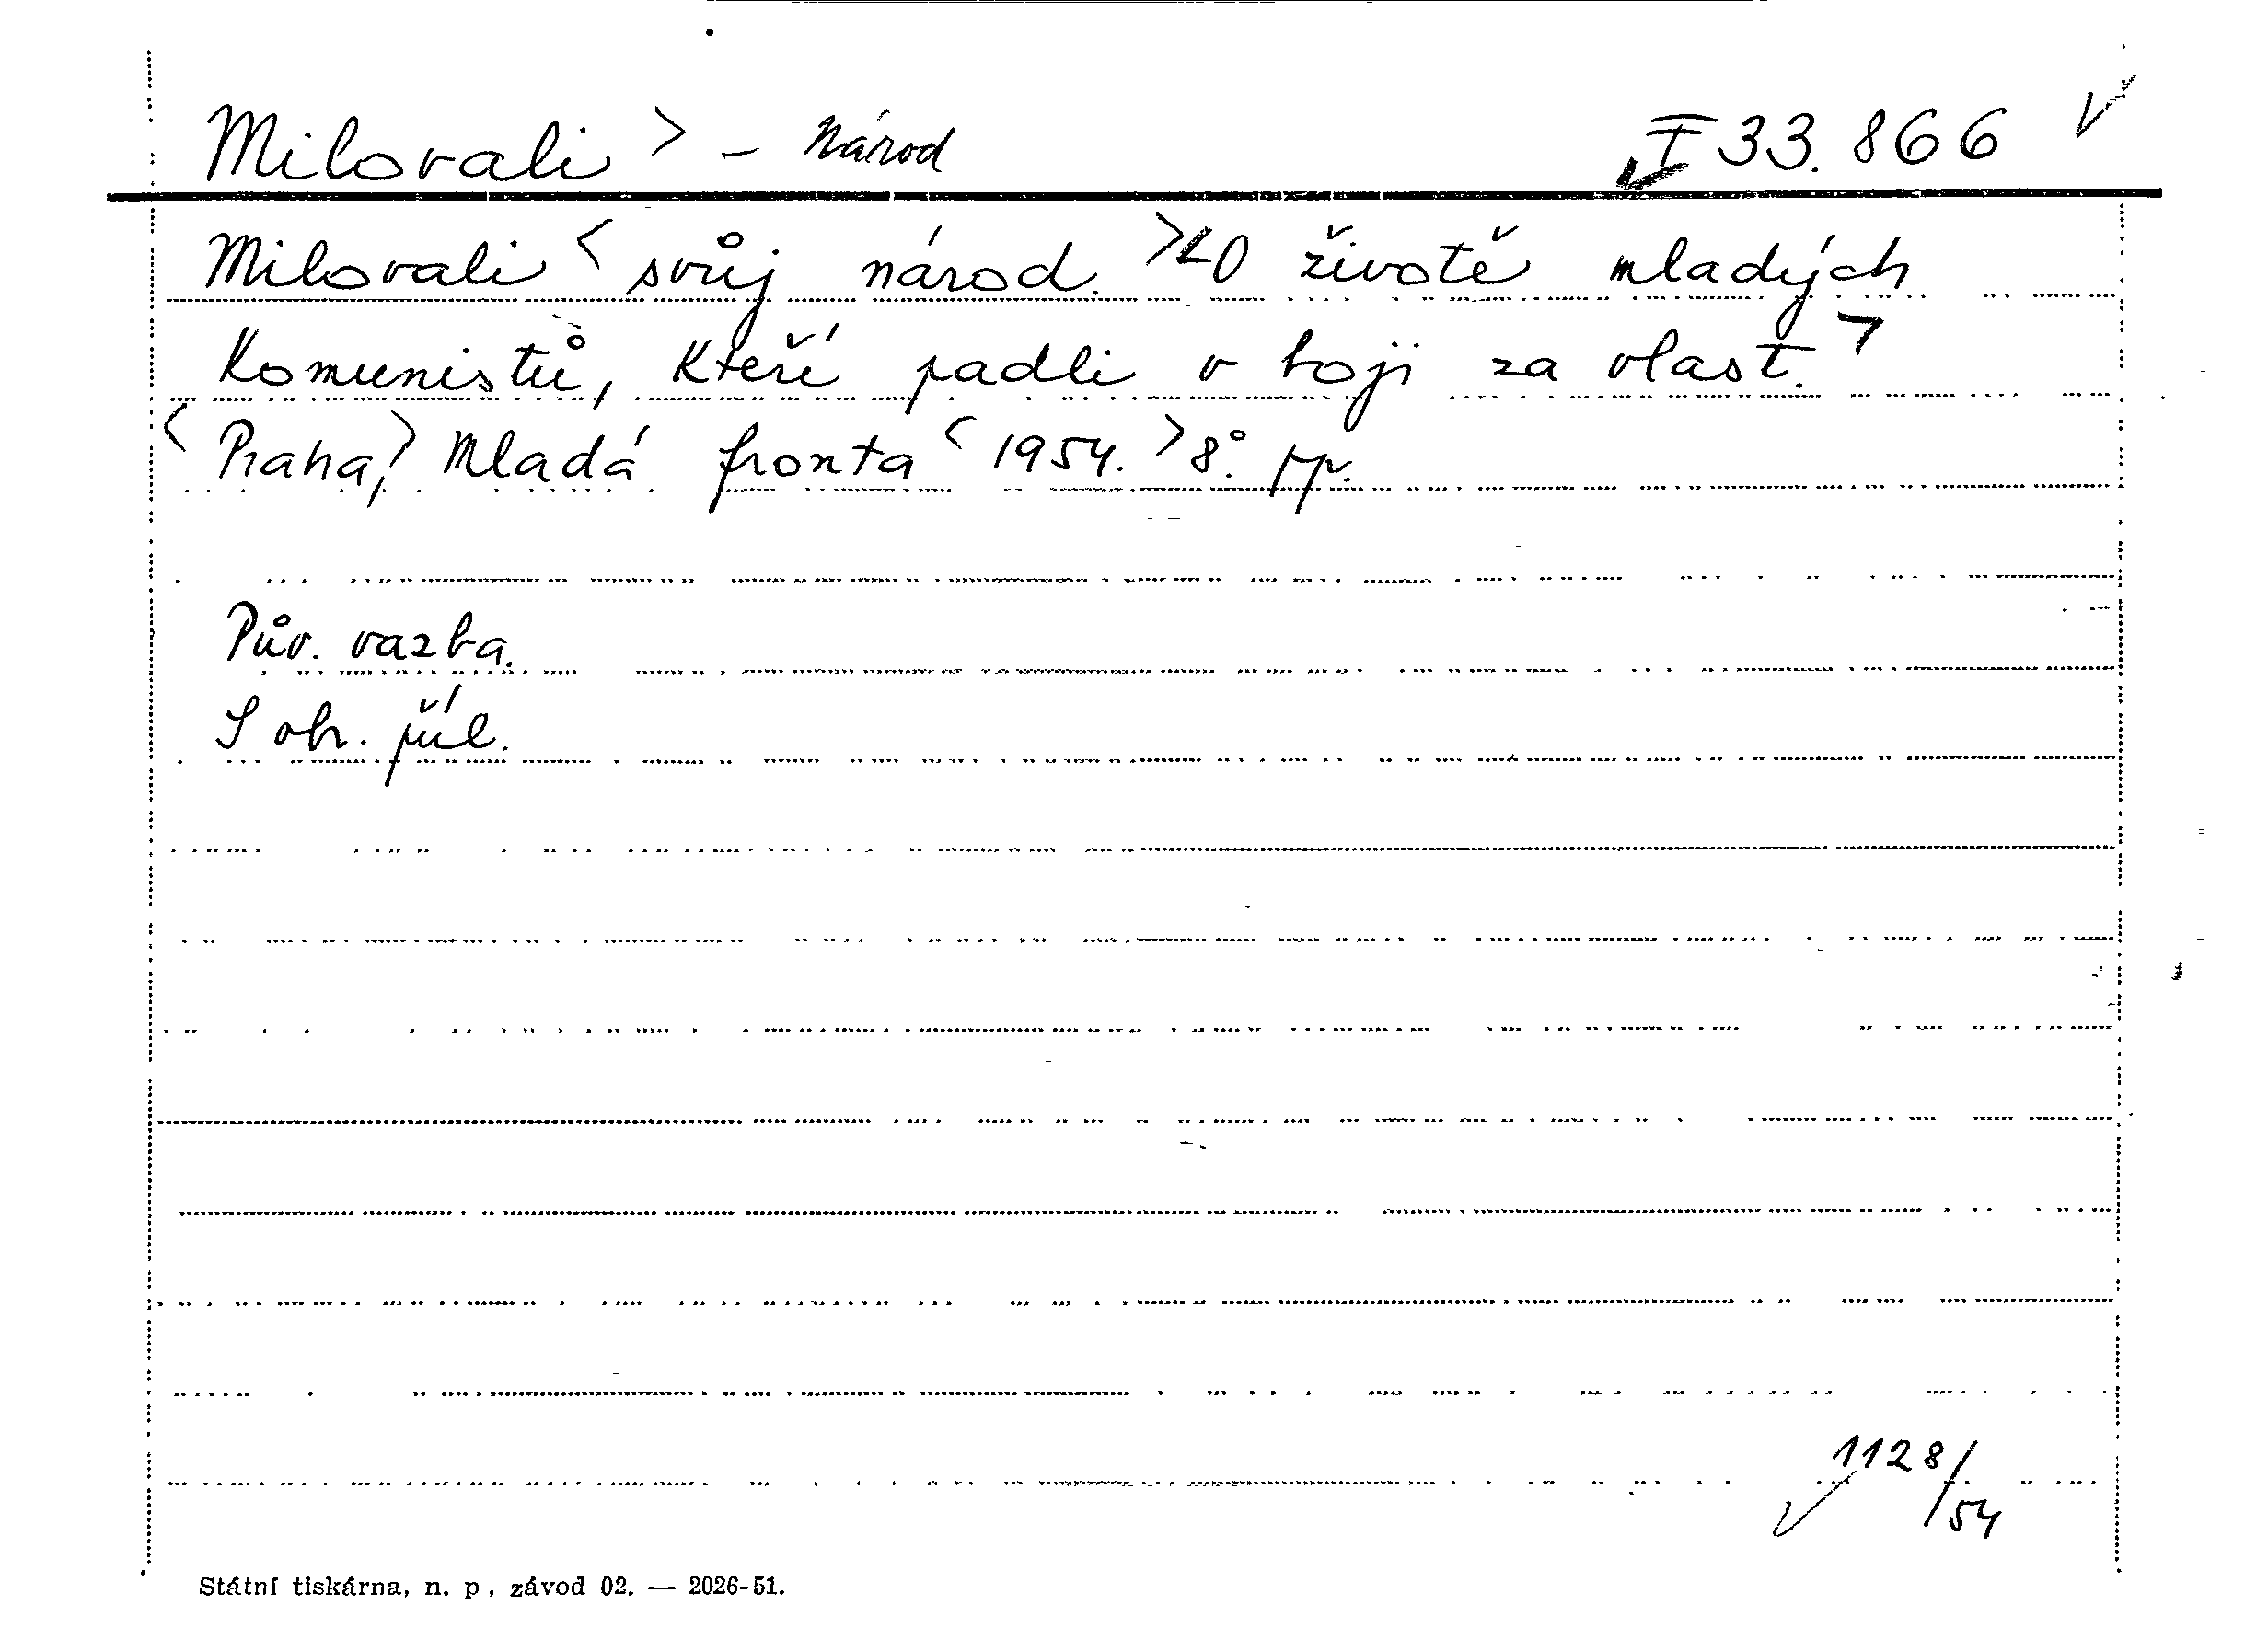 Milovali > - Národ I 33.866
Milovali < svůj národ. > < O životě mladých
Komunistů, kteří padli v boji za vlast. >
< Praha, > Mladá fronta < 1954. > 8°.
Pův. vazba.
S obr. příl.
1128/54
Státní tiskárna, n. p., závod 02. — 2026-51.